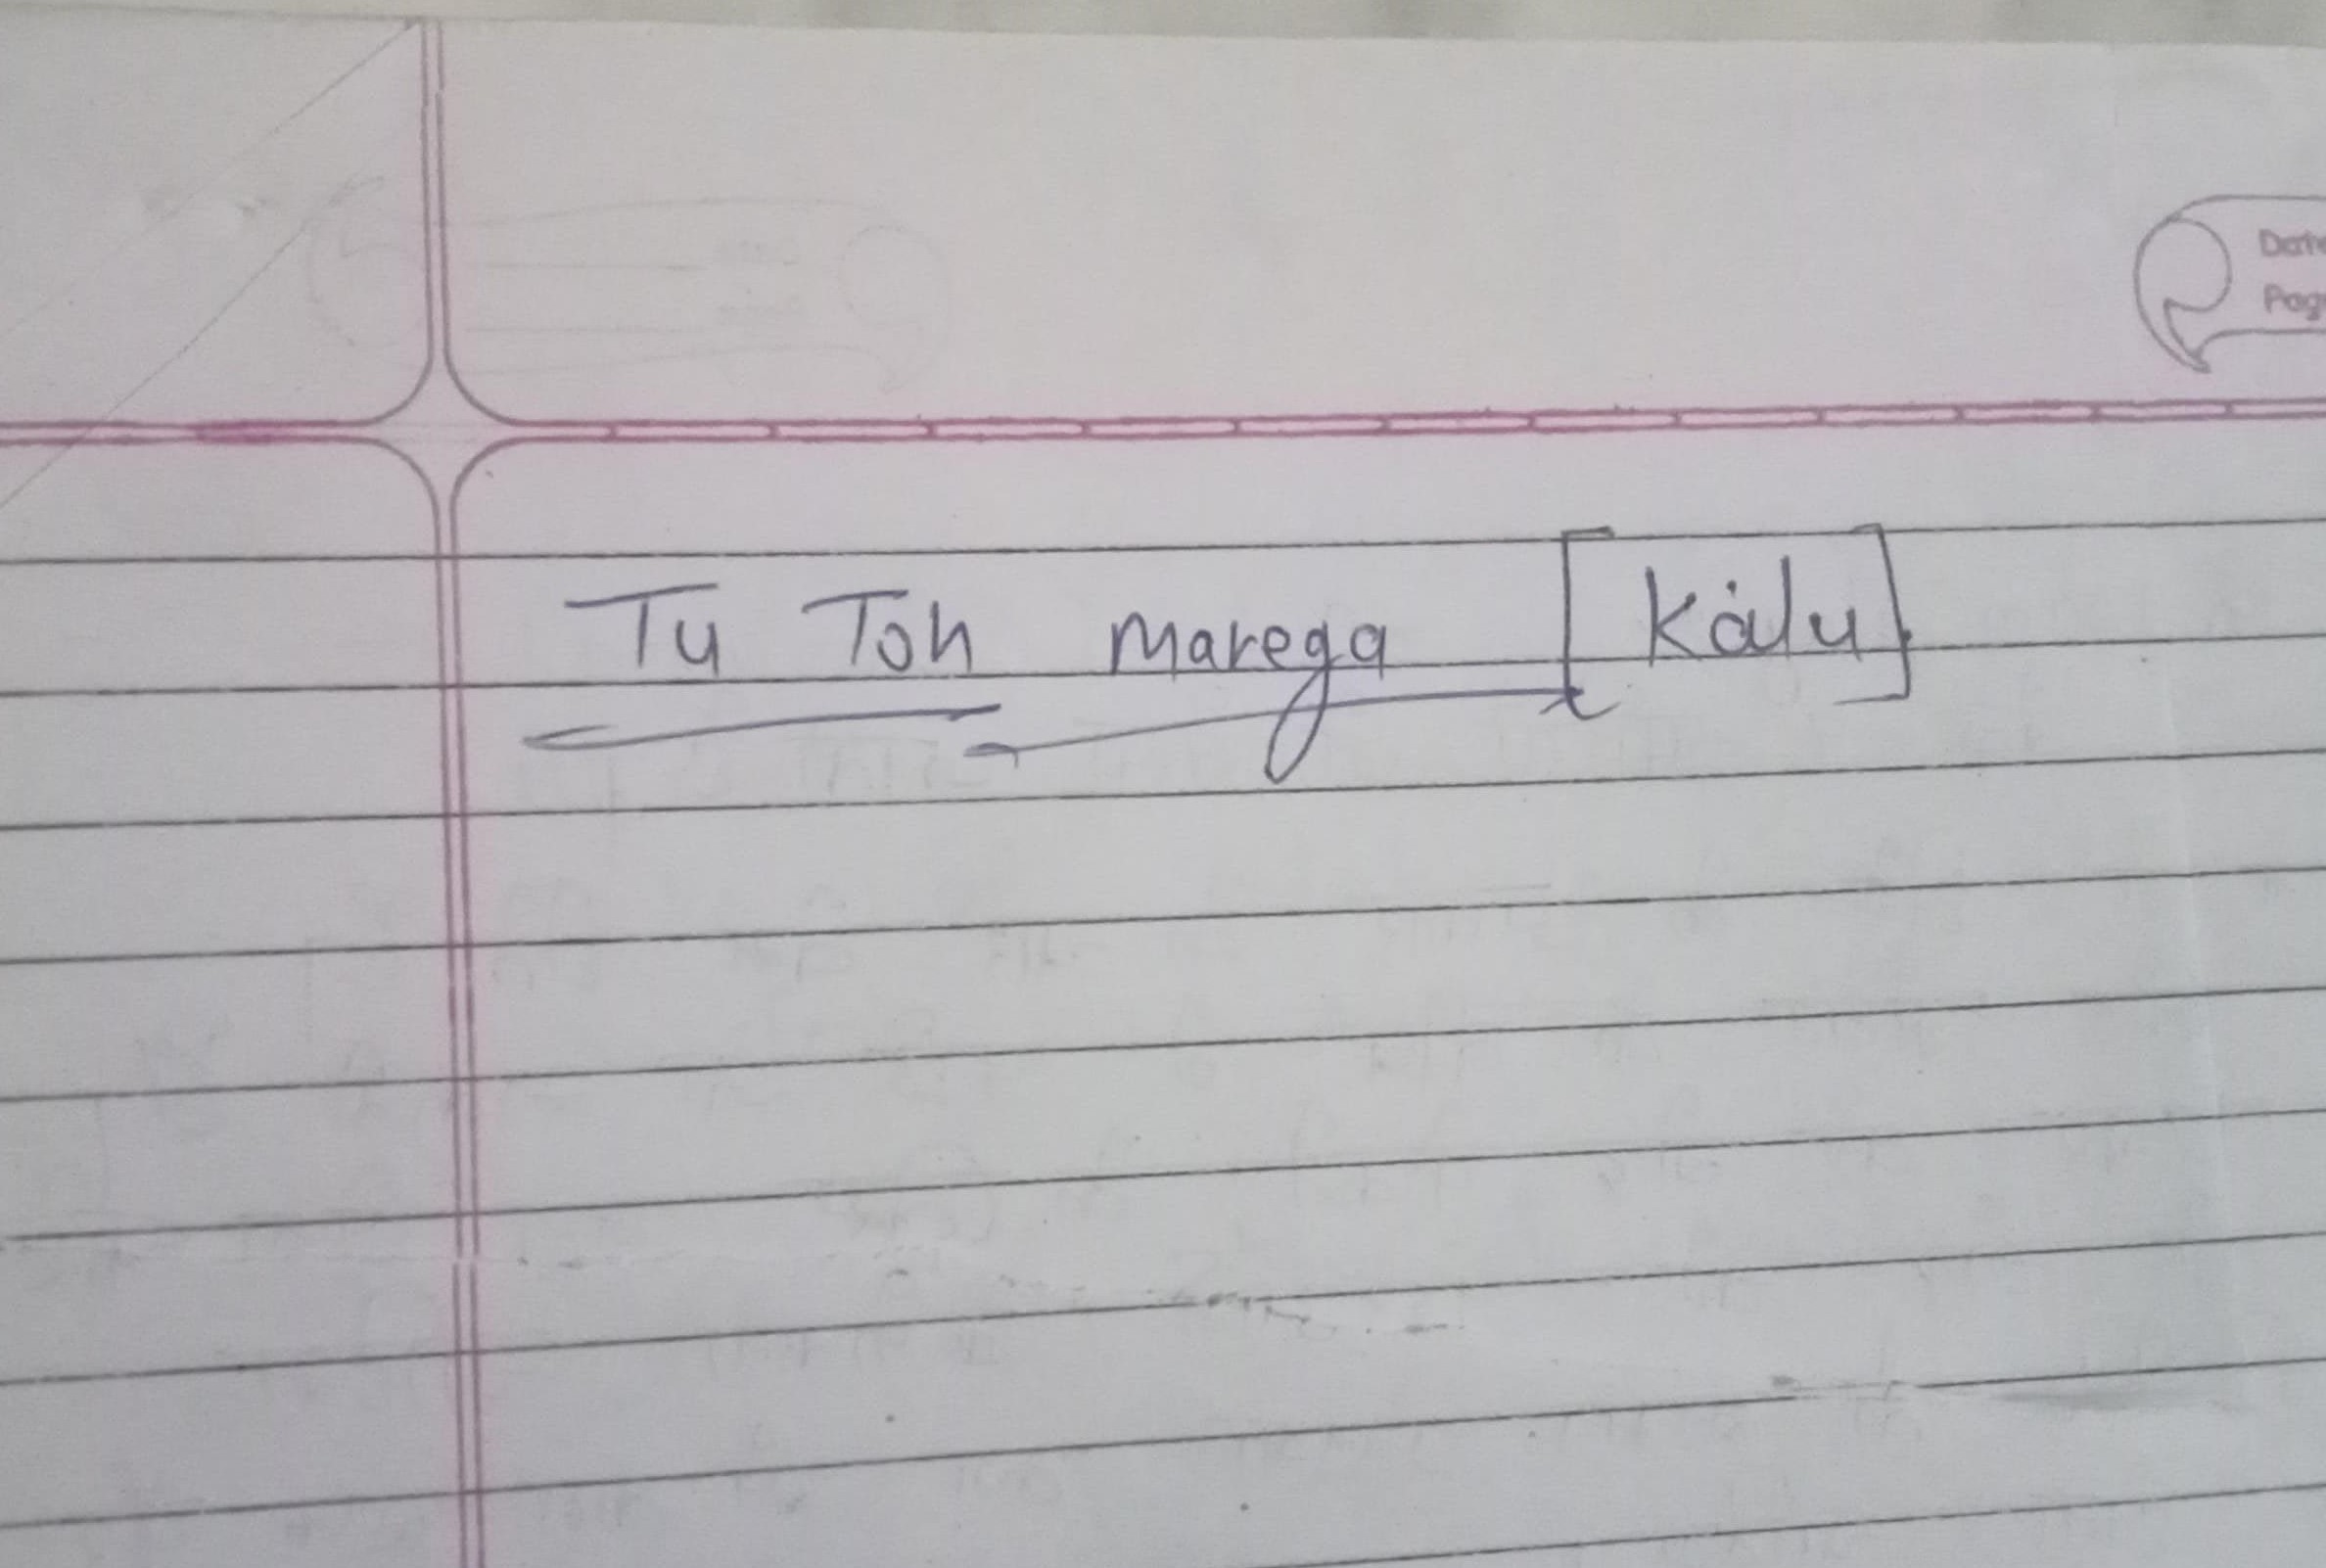 Dat
Pag
Tu Toh marega [Kalu]